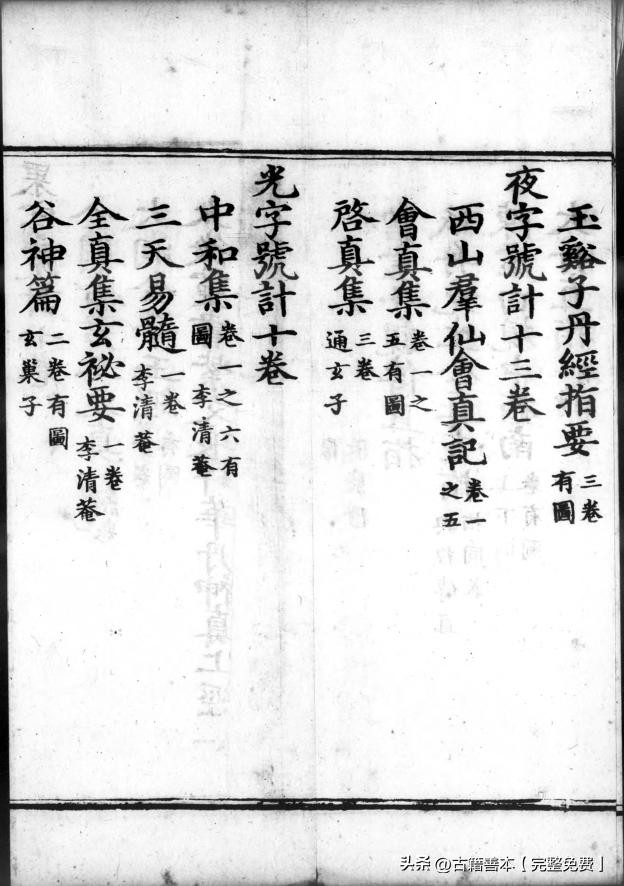 玉谿子丹經指要三卷有圖
夜字號計十三卷
西山羣仙會真記卷一之五
會真集卷一之五有圖
啓真集三卷通玄子
光字號計十卷
中和集卷一之六有圖 李清菴
三天易髓一卷李清菴
全真集玄祕要一卷李清菴
谷神篇二卷有圖玄巢子
头条 @古籍善本【完整免费】